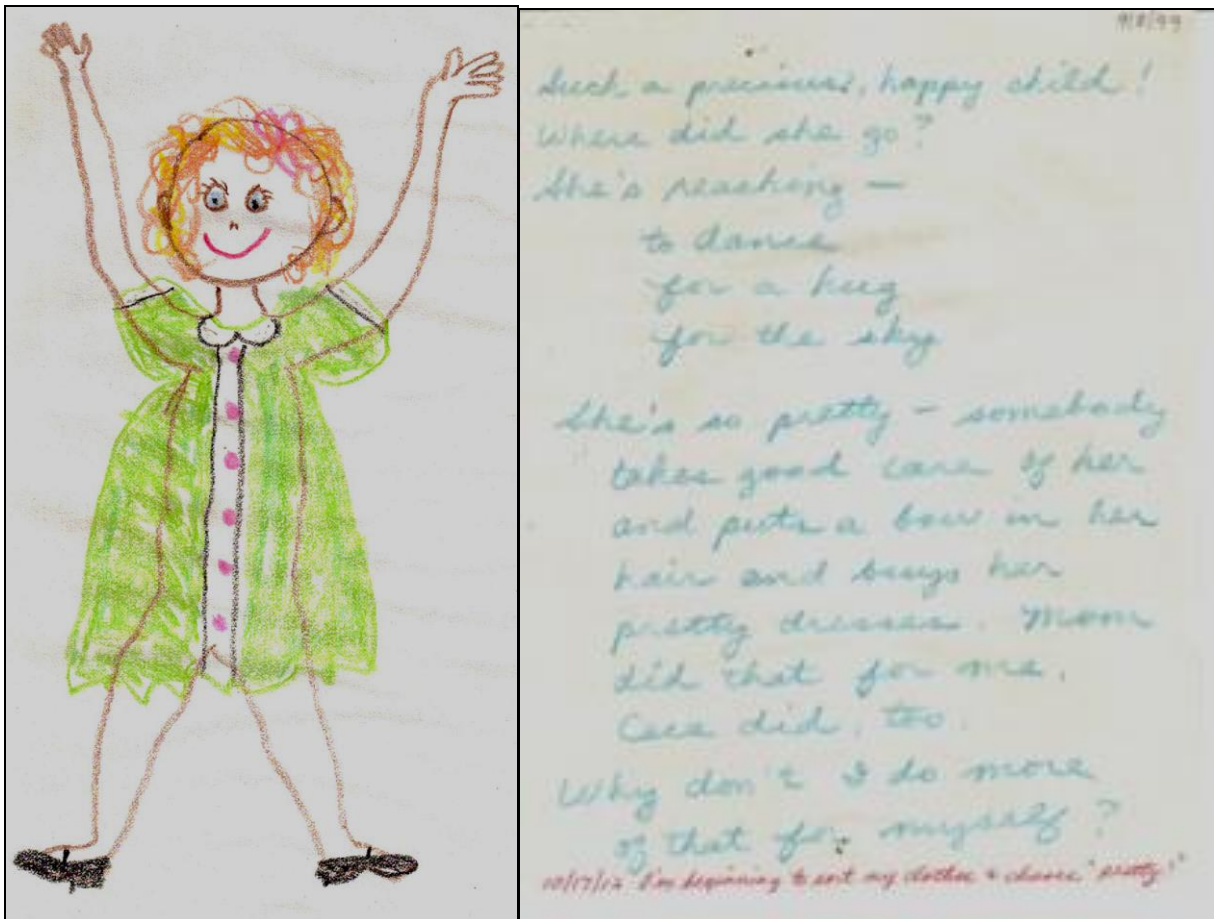 9/8/99
Such a precious, happy child!
Where did she go?
She's reaching —
to dance
for a hug
for the sky
She's so pretty – somebody
takes good care of her
and puts a bow in her
hair and buys her
pretty dresses. Mom
did that for me.
Cece did, too.
Why don't I do more
of that for myself?
10/17/12 I'm beginning to sort my clothes & choose "pretty!"